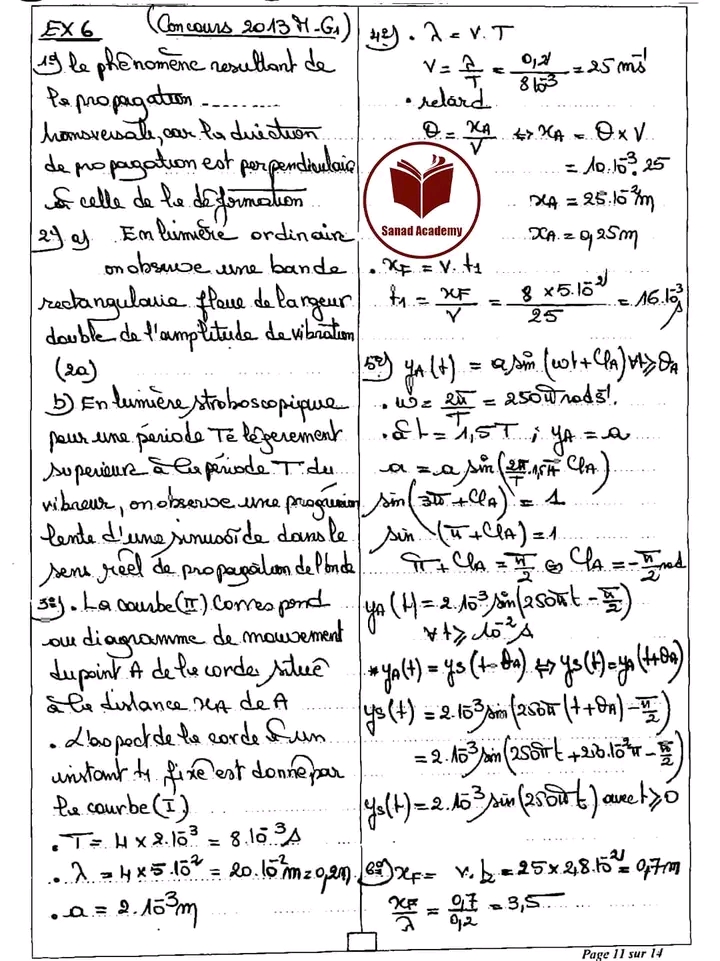 EX 6 (Concours 2013 M-G1)
1°) le phénomène resultant de
la propagation ----------
transversale, car la direction
de propagation est perpendiculaire
à celle de la déformation
2°) a) En lumière ordinaire
on observe une bande
rectangulaire floue de largeur
double de l'amplitude de vibration
(2a)
b) En lumière stroboscopique
pour une période Te légèrement
superieure à la période T du
vibreur, on observe une progression
lente d'une sinusoïde dans le
sens réel de propagation de l'onde
3°) . La courbe (II) correspond
au diagramme de mouvement
du point A de la corde situé
à la distance xA de A
. L'aspect de la corde à un
instant t1 fixé est donné par
la courbe (I)
. T = 4 x 2.10⁻³ = 8.10⁻³ s
. λ = 4 x 5.10⁻² = 20.10⁻² m = 0,2m
. a = 2.10⁻³ m
4°) . λ = v.T
v = λ/T = 0,2/8.10⁻³ = 25 ms⁻¹
. retard
θ = xA/v ⇔ xA = θ x v
= 10.10⁻³.25
xA = 25.10⁻² m
xA = 0,25m
Sanad Academy
. xF = v.t1
t1 = xF/v = 8 x 5.10⁻²/25 = 16.10⁻³ s
5°) yA(t) = a sin(ωt + φA) ∀t ≥ θA
. ω = 2π/T = 250π rad s⁻¹.
. à t = 1,5T ; yA = a
a = a sin(2π/T . 1,5T + φA)
sin(3π + φA) = 1
sin (π + φA) = 1
π + φA = π/2 ⇔ φA = -π/2 rad
yA(t) = 2.10⁻³ sin(250πt - π/2)
∀t ≥ 10⁻² s
* yA(t) = ys(t - θA) ⇔ ys(t) = yA(t + θA)
ys(t) = 2.10⁻³ sin(250π(t + θA) - π/2)
= 2.10⁻³ sin(250πt + 250.10⁻²π - π/2)
ys(t) = 2.10⁻³ sin(250πt) avec t ≥ 0
6°) xF = v.t2 = 25 x 2,8.10⁻² = 0,7m
xF/λ = 0,7/0,2 = 3,5
Page 11 sur 14